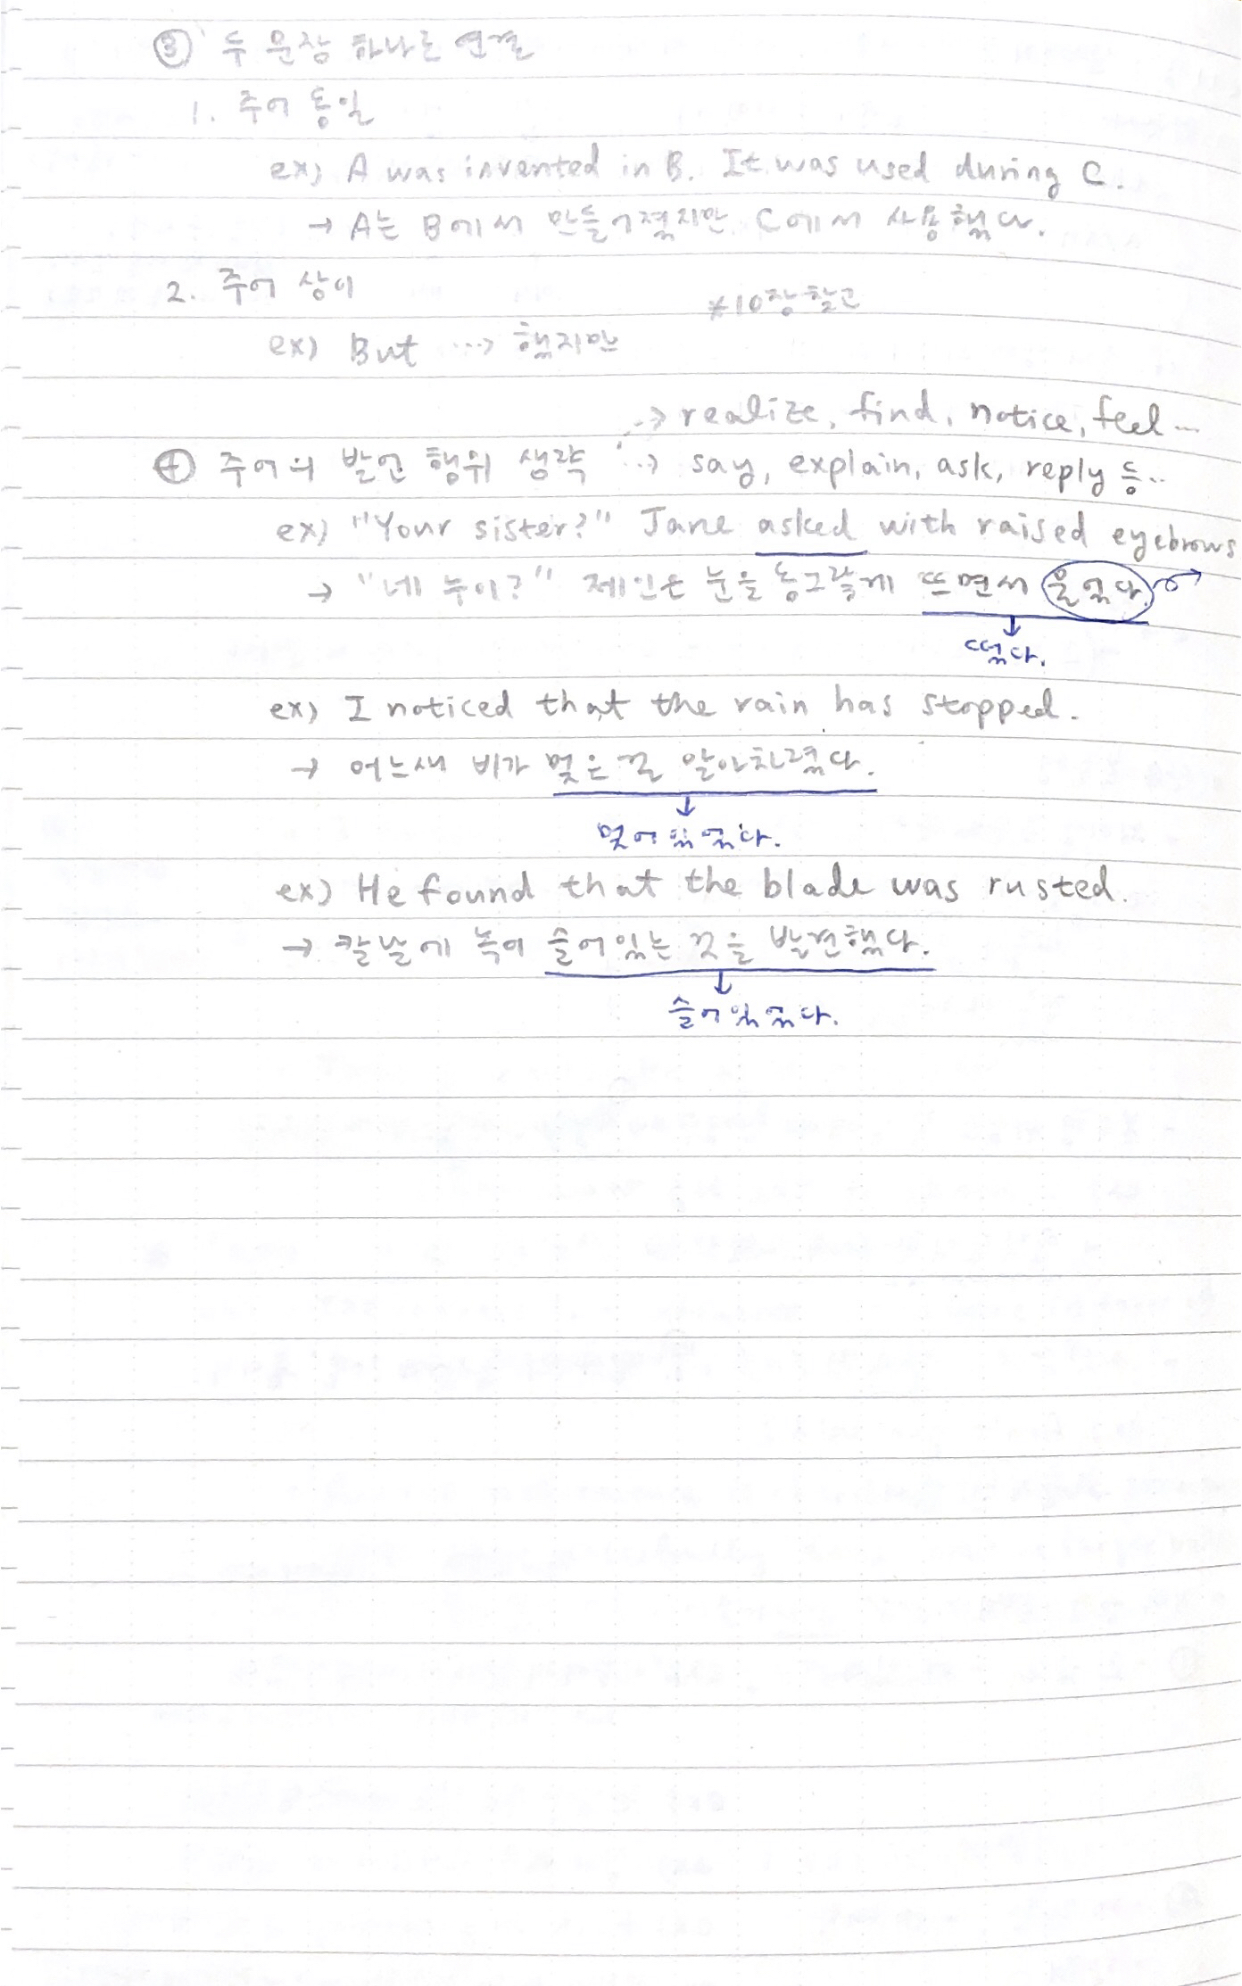 ③ 두 문장 하나로 연결
1. 주어 동일
ex) A was invented in B. It was used during C.
→ A는 B에서 만들어졌지만 C에서 사용했다.
2. 주어 상이
*10장 참고
ex) But ⋯> 했지만
⋯> realize, find, notice, feel ...
④ 주어의 발언 행위 생략 ⋯> say, explain, ask, reply 등..
ex) "Your sister?" Jane asked with raised eyebrows
→ "네 누이?" 제인은 눈을 동그랗게 뜨면서 물었다.
↓
떴다.
ex) I noticed that the rain has stopped.
→ 어느새 비가 멎은 걸 알아차렸다.
↓
멎어 있었다.
ex) He found that the blade was rusted.
→ 칼날에 녹이 슬어있는 것을 발견했다.
↓
슬어 있었다.